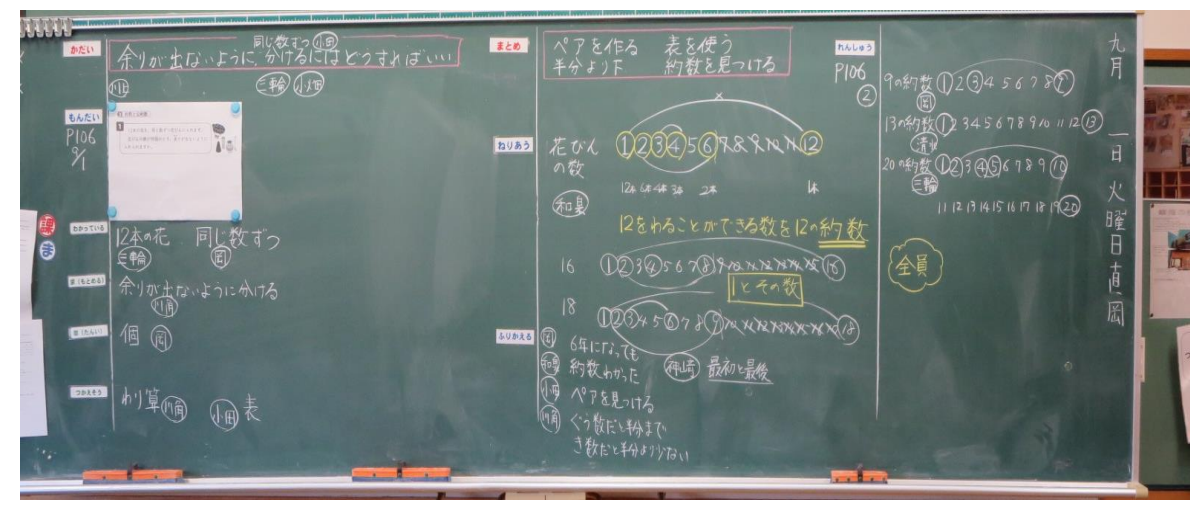 かだい
同じ数ずつ 小田
余りが出ないように、分けるにはどうすればいい
三輪 小畑
もんだい
P106
9/1
課
ま
わかっている
12本の花 同じ数ずつ
三輪 岡
ま(もとめる)
余りが出ないように分ける
川角
た(たんい)
個 岡
つかえそう
わり算 川角 小田 表
まとめ
ペアを作る 表を使う
半分より下 約数を見つける
ねりあう
花びん
の数
1 2 3 4 5 6 7 8 9 10 11 12
12本 6本 4本 3本 2本 1本
和泉
12をわることができる数を12の約数
16 1 2 3 4 5 6 7 8 9 10 11 12 13 14 15 16
1とその数
18 1 2 3 4 5 6 7 8 9 10 11 12 13 14 15 16 17 18
ふりかえる
岡 6年になっても
和泉 約数わかった 神崎 最初と最後
ペアを見つける
川角 ぐう数だと半分まで
き数だと半分より少ない
れんしゅう
P106
②
9の約数 1 2 3 4 5 6 7 8 9
岡
13の約数 1 2 3 4 5 6 7 8 9 10 11 12 13
20の約数 1 2 3 4 5 6 7 8 9 10
三輪
11 12 13 14 15 16 17 18 19 20
全員
九月一日火曜日直岡